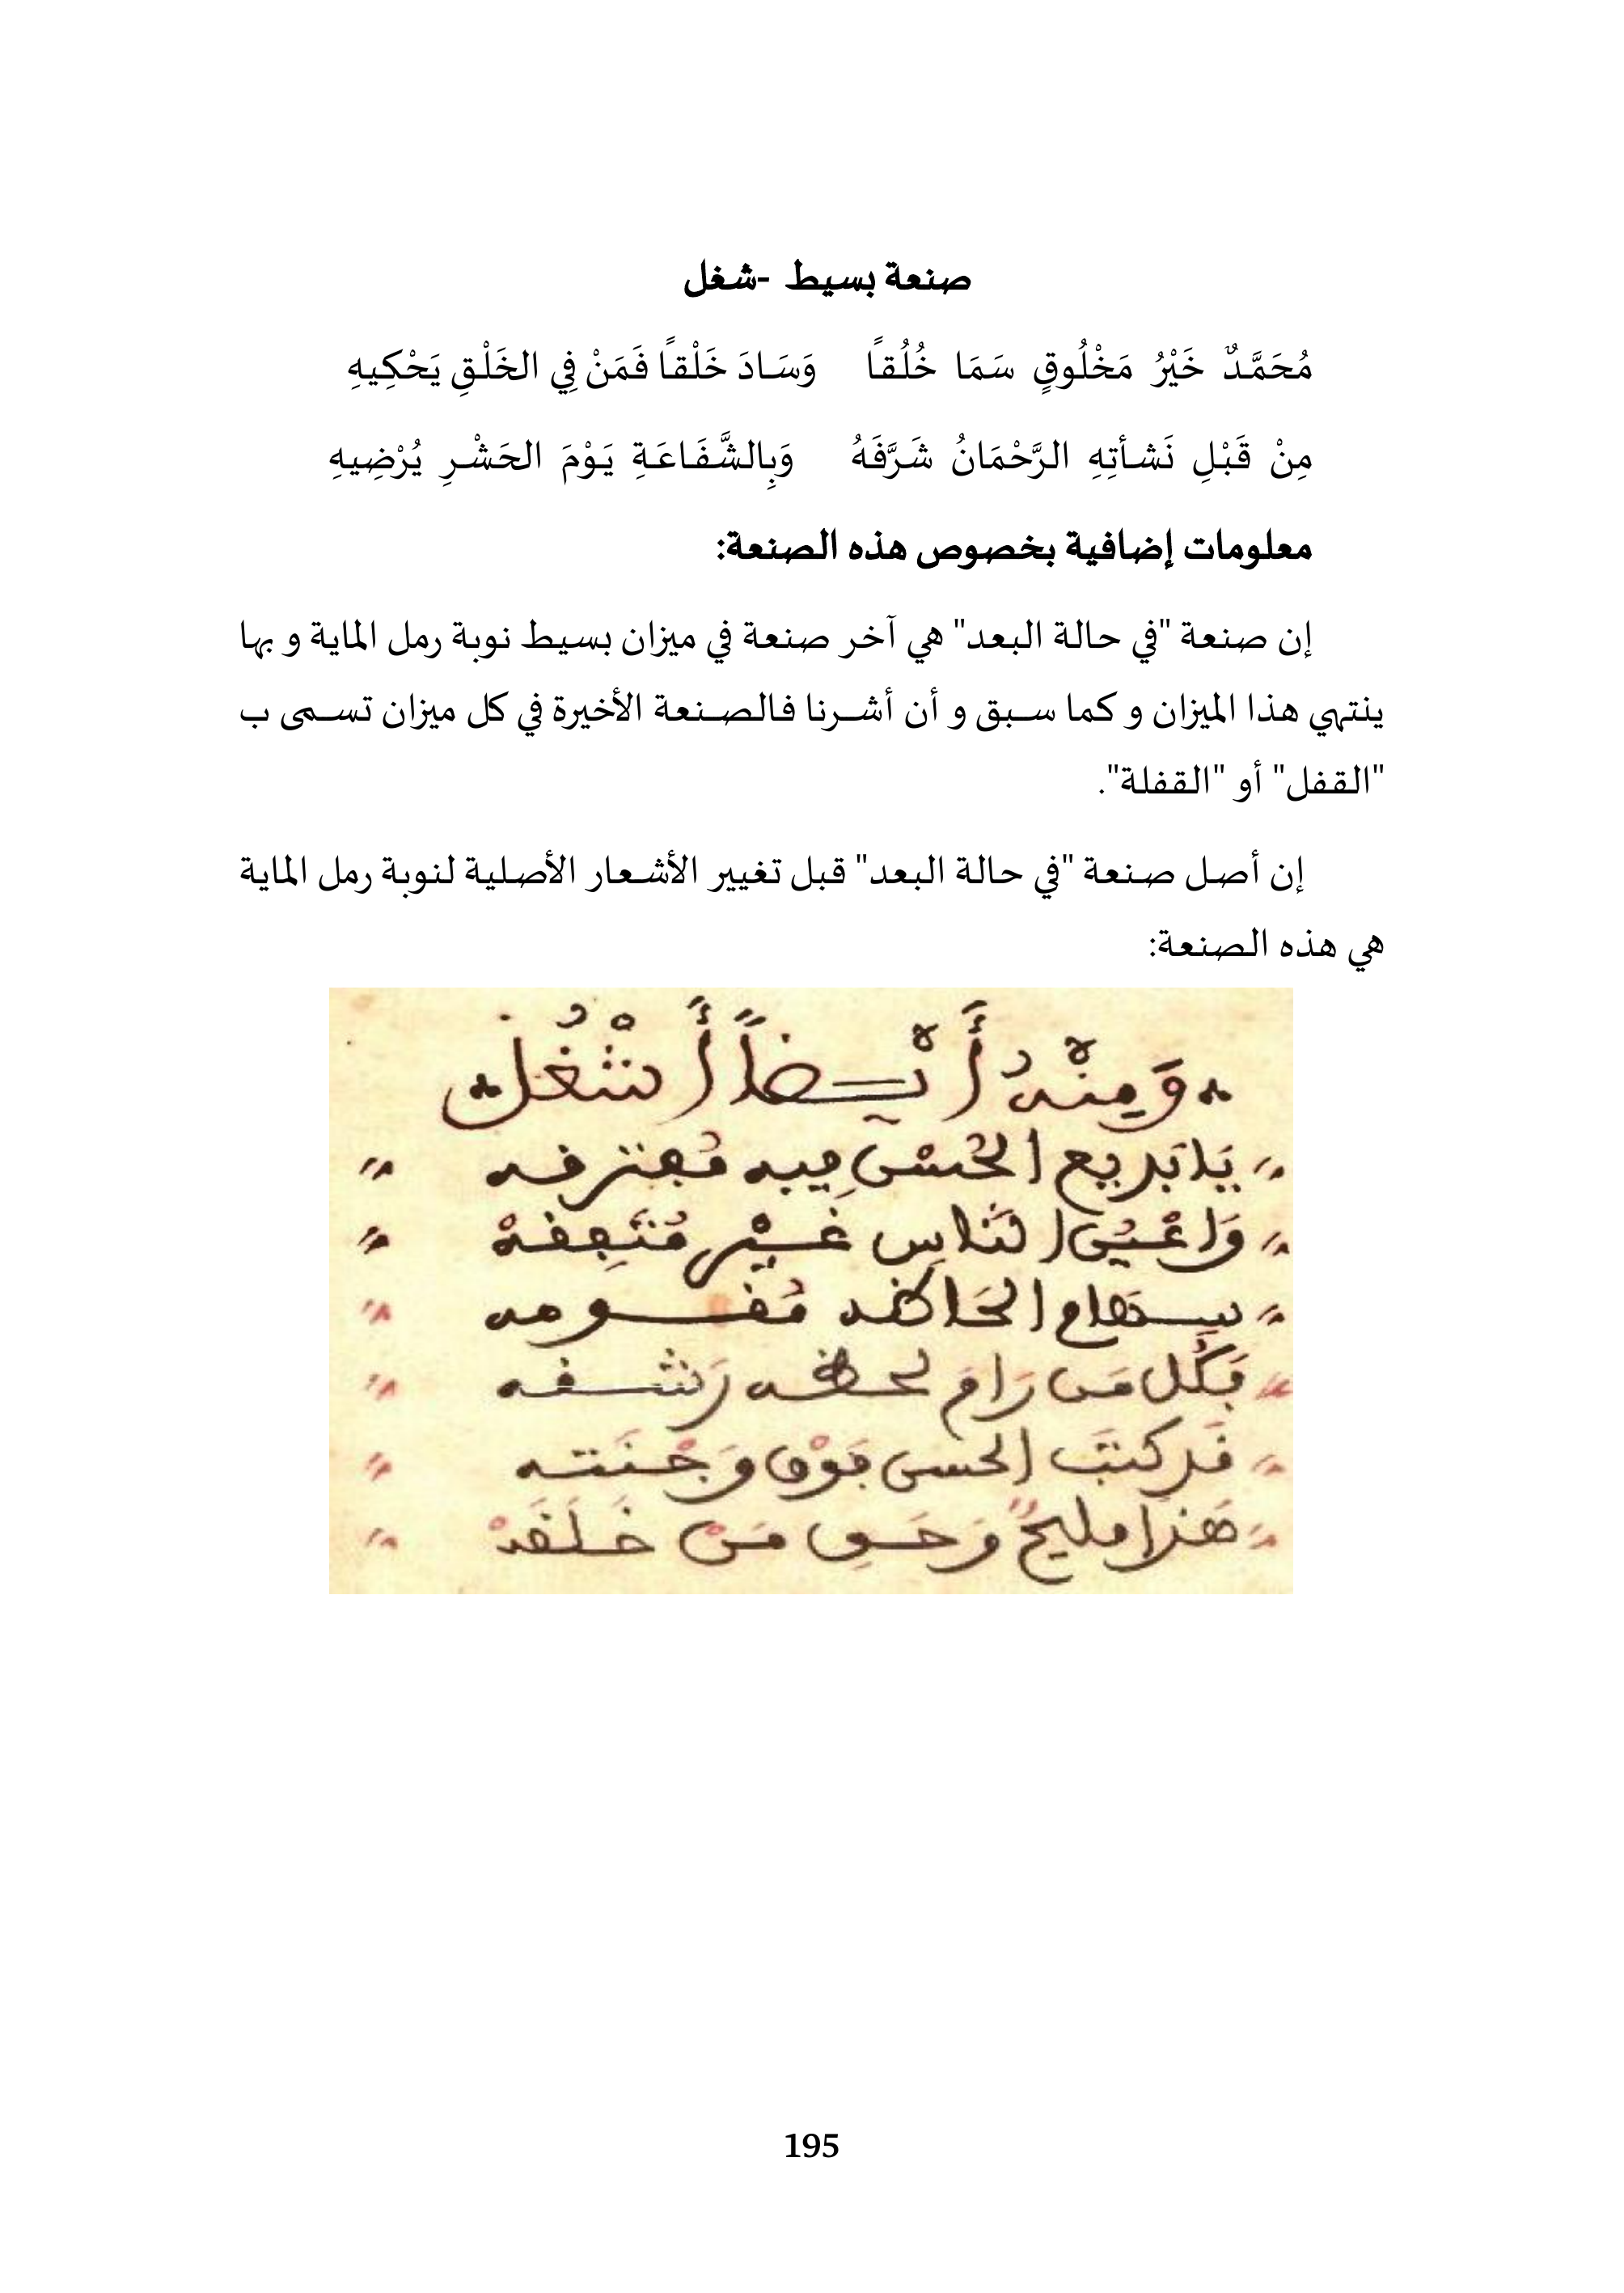 صنعة بسيط -شغل
مُحَمَّدٌ خَيْرُ مَخْلُوقٍ سَمَا خُلُقاً وَسَادَ خَلْقاً فَمَنْ فِي الخَلْقِ يَحْكِيهِ
مِنْ قَبْلِ نَشأتِهِ الرَّحْمَانُ شَرَّفَهُ وَبِالشَّفَاعَةِ يَوْمَ الحَشْرِ يُرْضِيهِ
معلومات إضافية بخصوص هذه الصنعة:
إن صنعة "في حالة البعد" هي آخر صنعة في ميزان بسيط نوبة رمل الماية و بها
ينتهي هذا الميزان و كما سبق و أن أشرنا فالصنعة الأخيرة في كل ميزان تسمى ب
"القفل" أو "القفلة".
إن أصل صنعة "في حالة البعد" قبل تغيير الأشعار الأصلية لنوبة رمل الماية
هي هذه الصنعة:
وَمِنْهُ أَيْضاً أَشْغُلْ
يَا بَديع الحُسْنِ فيه مُفترقه
وَاعْيُن النَاسِ غَيْر مُتَّفِقَهْ
سهام الحَاظه مُفوقه
فَكُل مَن رَامَ لحظه رَشقه
قَد كتبَ الحسن فَوْق وَجْنَته
هَذا مليحٌ وَحَق مَنْ خَلَقَهْ
195